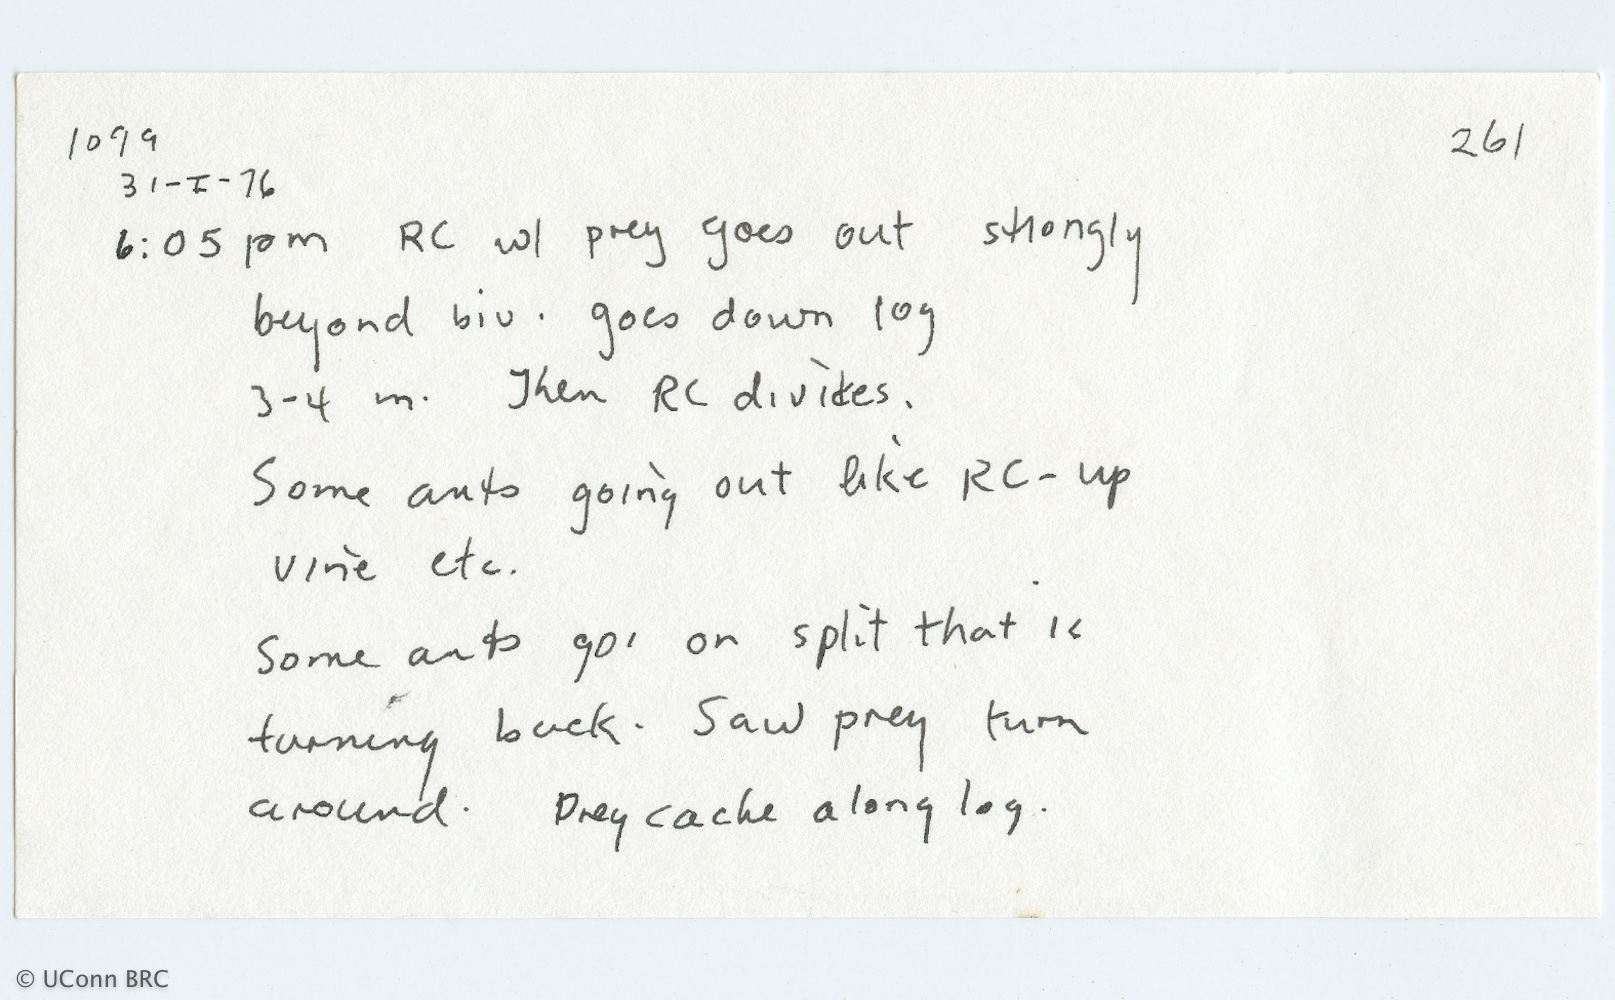 1099
261
31-I-76
6:05 pm RC w/ prey goes out strongly
beyond biv. goes down log
3-4 m. Then RC divides.
Some ants going out like RC-up
vine etc.
Some ants go on split that is
turning back. Saw prey turn
around. Prey cache along log.
© UConn BRC